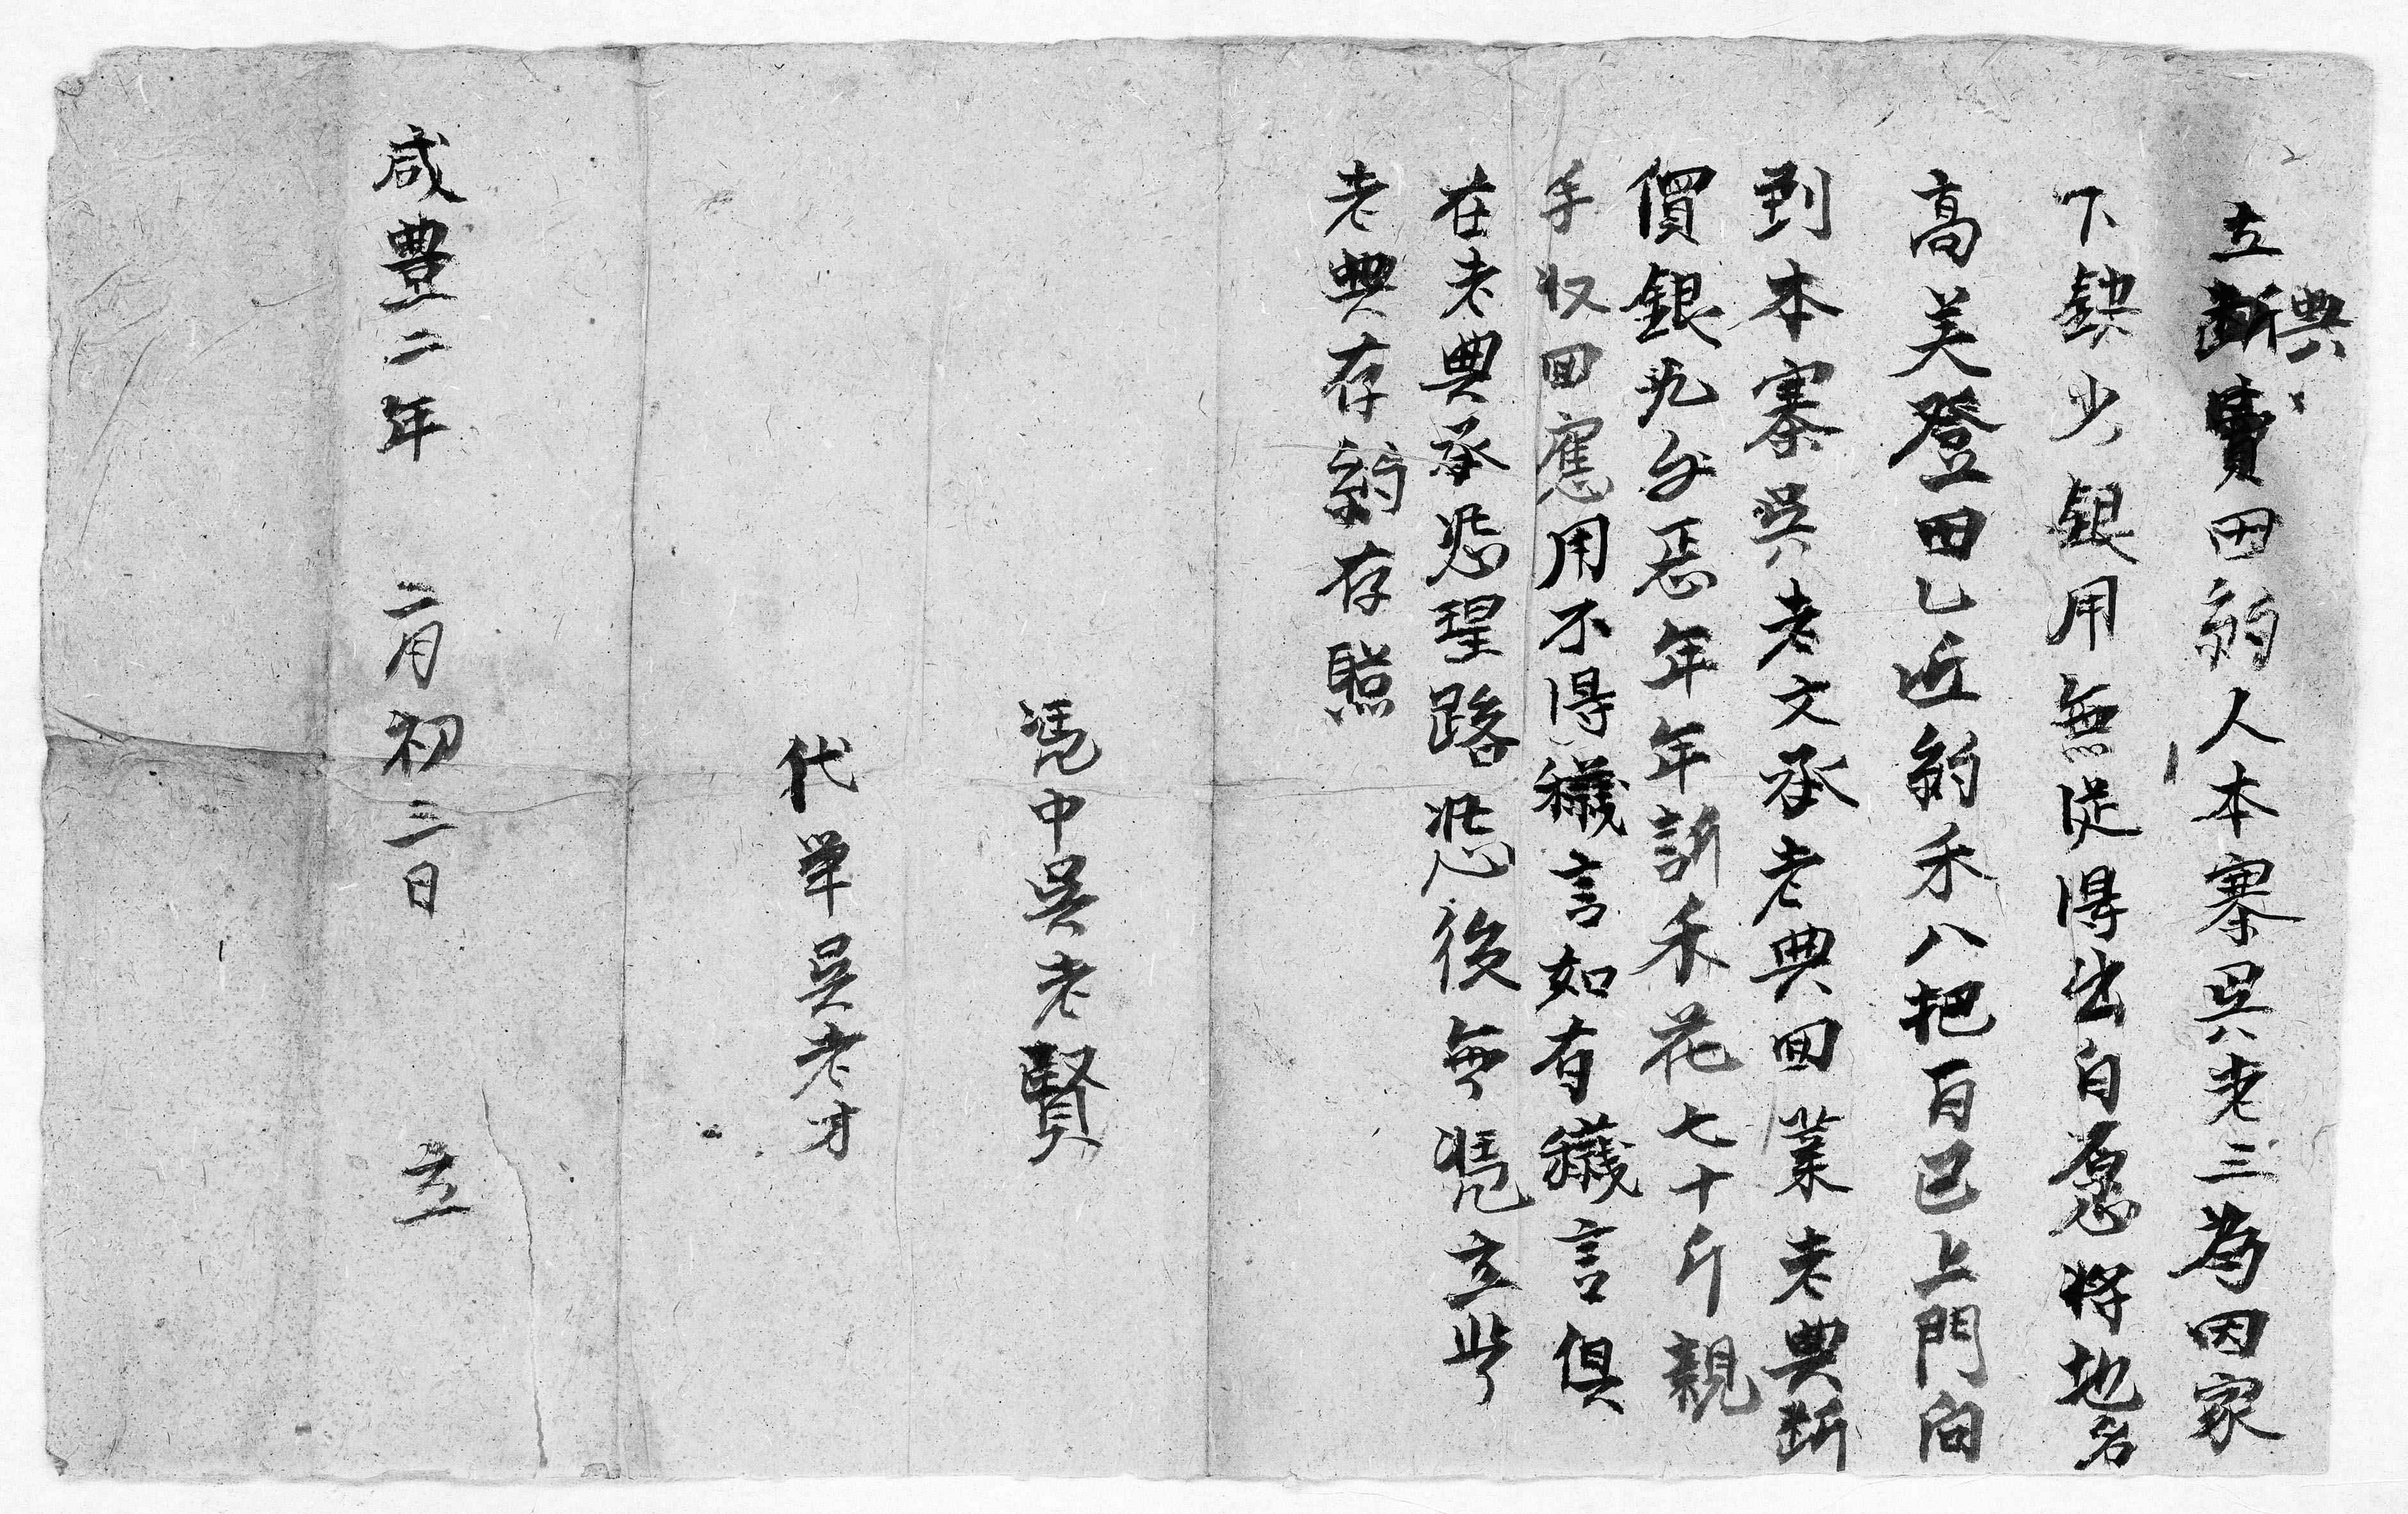 立断典賣田約人本寨吳老三為因家
下缺少銀用無從得出自愿將地名
高美登田乚近約禾八把百已上門向
到本寨吳老文承老典田業老典断
價銀九分忢年年訢禾花七十斤親
手收回應用不得言如有言俱
在老典承㤞理路㤞後無憑立此
老典存約存照
憑中吳老賢
代筆吳老才
咸豐二年 二月初三日 立